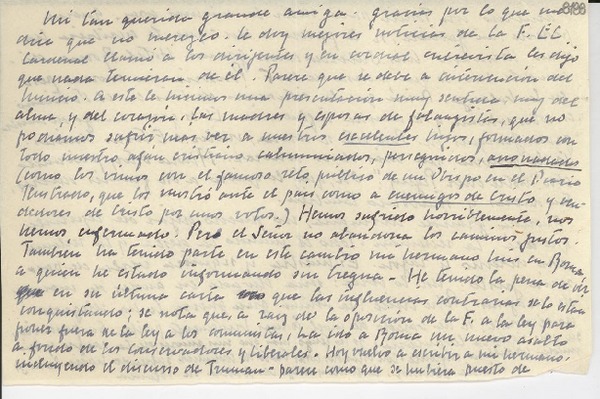 Mi tan querida grande amiga: gracias por lo que me
dice que no merezco. Le doy mejores noticias de la F. El
Cardenal llamó a los dirijentes y en cordial entrevista les dijo
que nada temieran de él. Parece que se debe a intervención del
Nuncio. A este le hicimos una presentación muy sentida, muy del
alma, y del corazón, las madres y esposas de falangistas, que no
podíamos sufrir mas ver a nuestros excelentes hijos, formados con
todo nuestro afán cristiano calumniados, perseguidos,
(como los vimos con el famoso reto público de un Obispo en el Diario
Ilustrado, que los mostró ante el país como a enemigos de Cristo y ven-
dedores de Cristo por unos votos.) Hemos sufrido horriblemente, nos
hemos enfermado. Pero el Señor no abandona los caminos justos.
También ha tenido parte en este cambio mi hermano Luis en Roma
a quien he estado informando sin tregua. He tenido la pena de
en su última carta que las influencias contrarias se lo están
conquistando; se nota que a raíz de la oposición de la F. a la ley para
poner fuera de la ley a los comunistas, ha ido a Roma un nuevo asalto
a fondo de los conservadores y liberales. Hoy vuelvo a escribir a mi hermano,
incluyendo el discurso de Truman - parece como que se hubiera puesto de